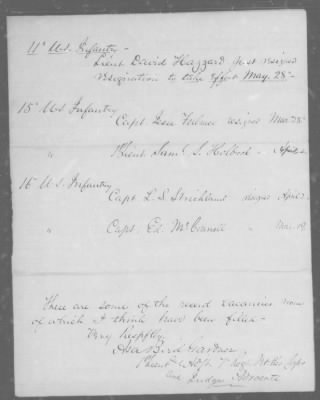 11th U.S. Infantry -
Lieut David Hazzard just resigned
resignation to take effect May. 28 -
18 U.S Infantry
Capt resigned Mar. 28
" Lieut Sam'l S. Holbrook - April 4
16 U.S. Infantry
Capt L. S. Strickland resigns April
" Capt. Ed. McConnell " Mar. 19
These are some of the recent vacancies none
of which I think have been filled -
Very Respfly.
Asa Bird Gardner
1st Lieut & Adjt. 7 Regt
and Judge Advocate